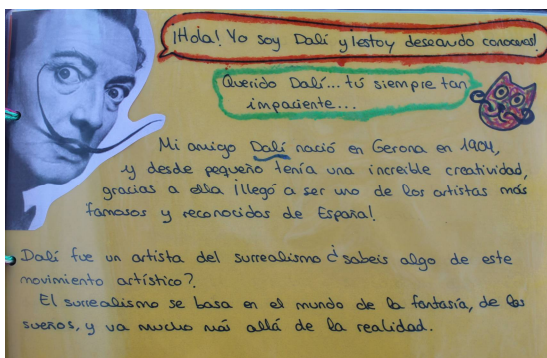 ¡Hola! Yo soy Dalí y ¡estoy deseando conoceros!
Querido Dalí... tú siempre tan
impaciente...
Mi amigo Dalí nació en Gerona en 1904,
y desde pequeño tenía una increible creatividad,
gracias a ella ¡llegó a ser uno de los artistas más
famosos y reconocidos de España!
Dalí fue un artista del surrealismo ¿sabeis algo de este
movimiento artístico?.
El surrealismo se basa en el mundo de la fantasía, de los
sueños, y va mucho más allá de la realidad.